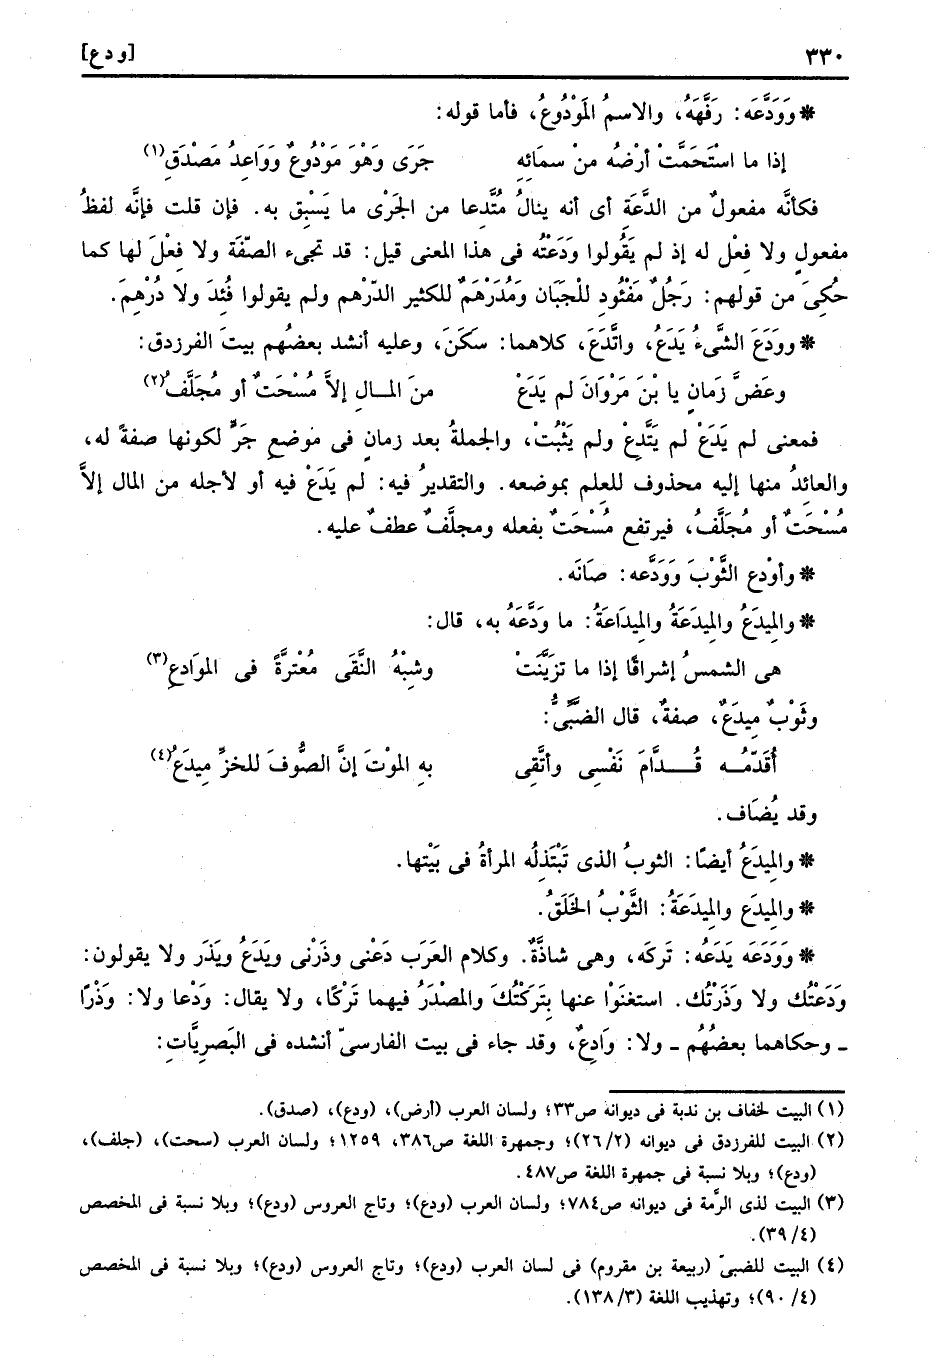 ٣٣٠ [و د ع]
* وَوَدَّعَه: رَفَّهَهُ، والاسمُ المَوْدُوعُ، فأما قوله:
إذا ما اسْتَحَمَّتْ أرْضُه منْ سمَائه جَرَى وَهْوَ مَوْدُوعٌ ووَاعِدُ مَصْدَقِ(١)
فكأنَّه مفعولٌ من الدَّعَةِ أى أنه ينالُ مُتَّدعا من الجَرْى ما يَسْبِق به. فإن قلت فإنَّه لفظُ
مفعولٍ ولا فِعْل له إذ لم يَقُولوا وَدَعْتُه فى هذا المعنى قيل: قد تجىء الصّفَة ولا فِعْلَ لها كما
حُكِىَ من قولهم: رَجُلٌ مَفْئُود للْجَبَان ومُدَرْهَمٌ للكثير الدّرْهم ولم يقولوا فُئدَ ولا دُرْهِمَ.
* ووَدَعَ الشَّىءُ يَدَعُ، واتَّدَعَ، كلاهما: سكَنَ، وعليه أنشد بعضهُم بيتَ الفرزدق:
وعَضَّ زَمانٍ يا بْنَ مَرْوَانَ لم يَدَعْ منَ المـالِ إلاَّ مُسْحَتٌ أو مُجَلَّفُ(٢)
فمعنى لم يَدَعْ لم يَتَّدِعْ ولم يَثْبُتْ، والجملةُ بعد زمانٍ فى موْضعِ جَرٍّ لكونها صفةً له،
والعائدُ منها إليه محذوف للعِلم بموضعه. والتقديرُ فيه: لم يَدَعْ فيه أو لأجله من المال إلاَّ
مُسْحَتٌ أو مُجَلَّفُ، فيرتفع مُسْحَتٌ بفعله ومجلَّفٌ عطفٌ عليه.
* وأوْدع الثَّوْبَ وَوَدَّعه: صَانَه.
* والمِيدَعُ والمِيدَعَةُ والمِيدَاعَةُ: ما وَدَّعَهُ به، قال:
هى الشمسُ إشراقًا إذا ما تزَيَّنَتْ وشِبْهُ النَّقَى مُغْترَّةً فى الموَادعِ(٣)
وثَوْبٌ مِيدَعٌ، صفةٌ، قال الضبِّىُّ:
أُقَدّمُـه قُـدَّامَ نَفْسِى وأتَّقِى بهِ الموْتَ إنَّ الصُّوفَ للخزِّ مِيدَعُ(٤)
وقد يُضَاف.
* والمِيدَعُ أيضًا: الثوبُ الذى تَبْتَذِلُه المرأةُ فى بَيْتها.
* والمِيدَع والمِيدَعَةُ: الثَّوْبُ الخَلَقُ.
* وَوَدَعَه يَدَعُه: تَركَه، وهى شاذَّةٌ. وكلام العَرَب دَعْنى وذَرْنى ويَدَعُ ويَذَر ولا يقولون:
وَدَعْتُك ولا وَذَرْتُك. استغنَوْا عنها بِتَركْتُكَ والمصْدَرُ فيهما تَرْكًا، ولا يقال: وَدْعا ولا: وَذْرًا
ـ وحكاهما بعضُهُم ـ ولا: وَادِعٌ، وقد جاء فى بيت الفارسىّ أنشده فى البَصرِيَّاتِ:
(١) البيت لخفاف بن ندبة فى ديوانه ص٣٣؛ ولسان العرب (أرض)، (ودع)، (صدق).
(٢) البيت للفرزدق فى ديوانه (٢٦/٢)؛ وجمهرة اللغة ص٣٨٦، ١٢٥٩؛ ولسان العرب (سحت)، (جلف)،
(ودع)؛ وبلا نسبة فى جمهرة اللغة ص٤٨٧.
(٣) البيت لذى الرَّمة فى ديوانه ص٧٨٤؛ ولسان العرب (ودع)؛ وتاج العروس (ودع)؛ وبلا نسبة فى المخصص
(٣٩/٤).
(٤) البيت للضبىّ (ربيعة بن مقروم) فى لسان العرب (ودع)؛ وتاج العروس (ودع)؛ وبلا نسبة فى المخصص
(٩٠/٤)؛ وتهذيب اللغة (١٣٨/٣).